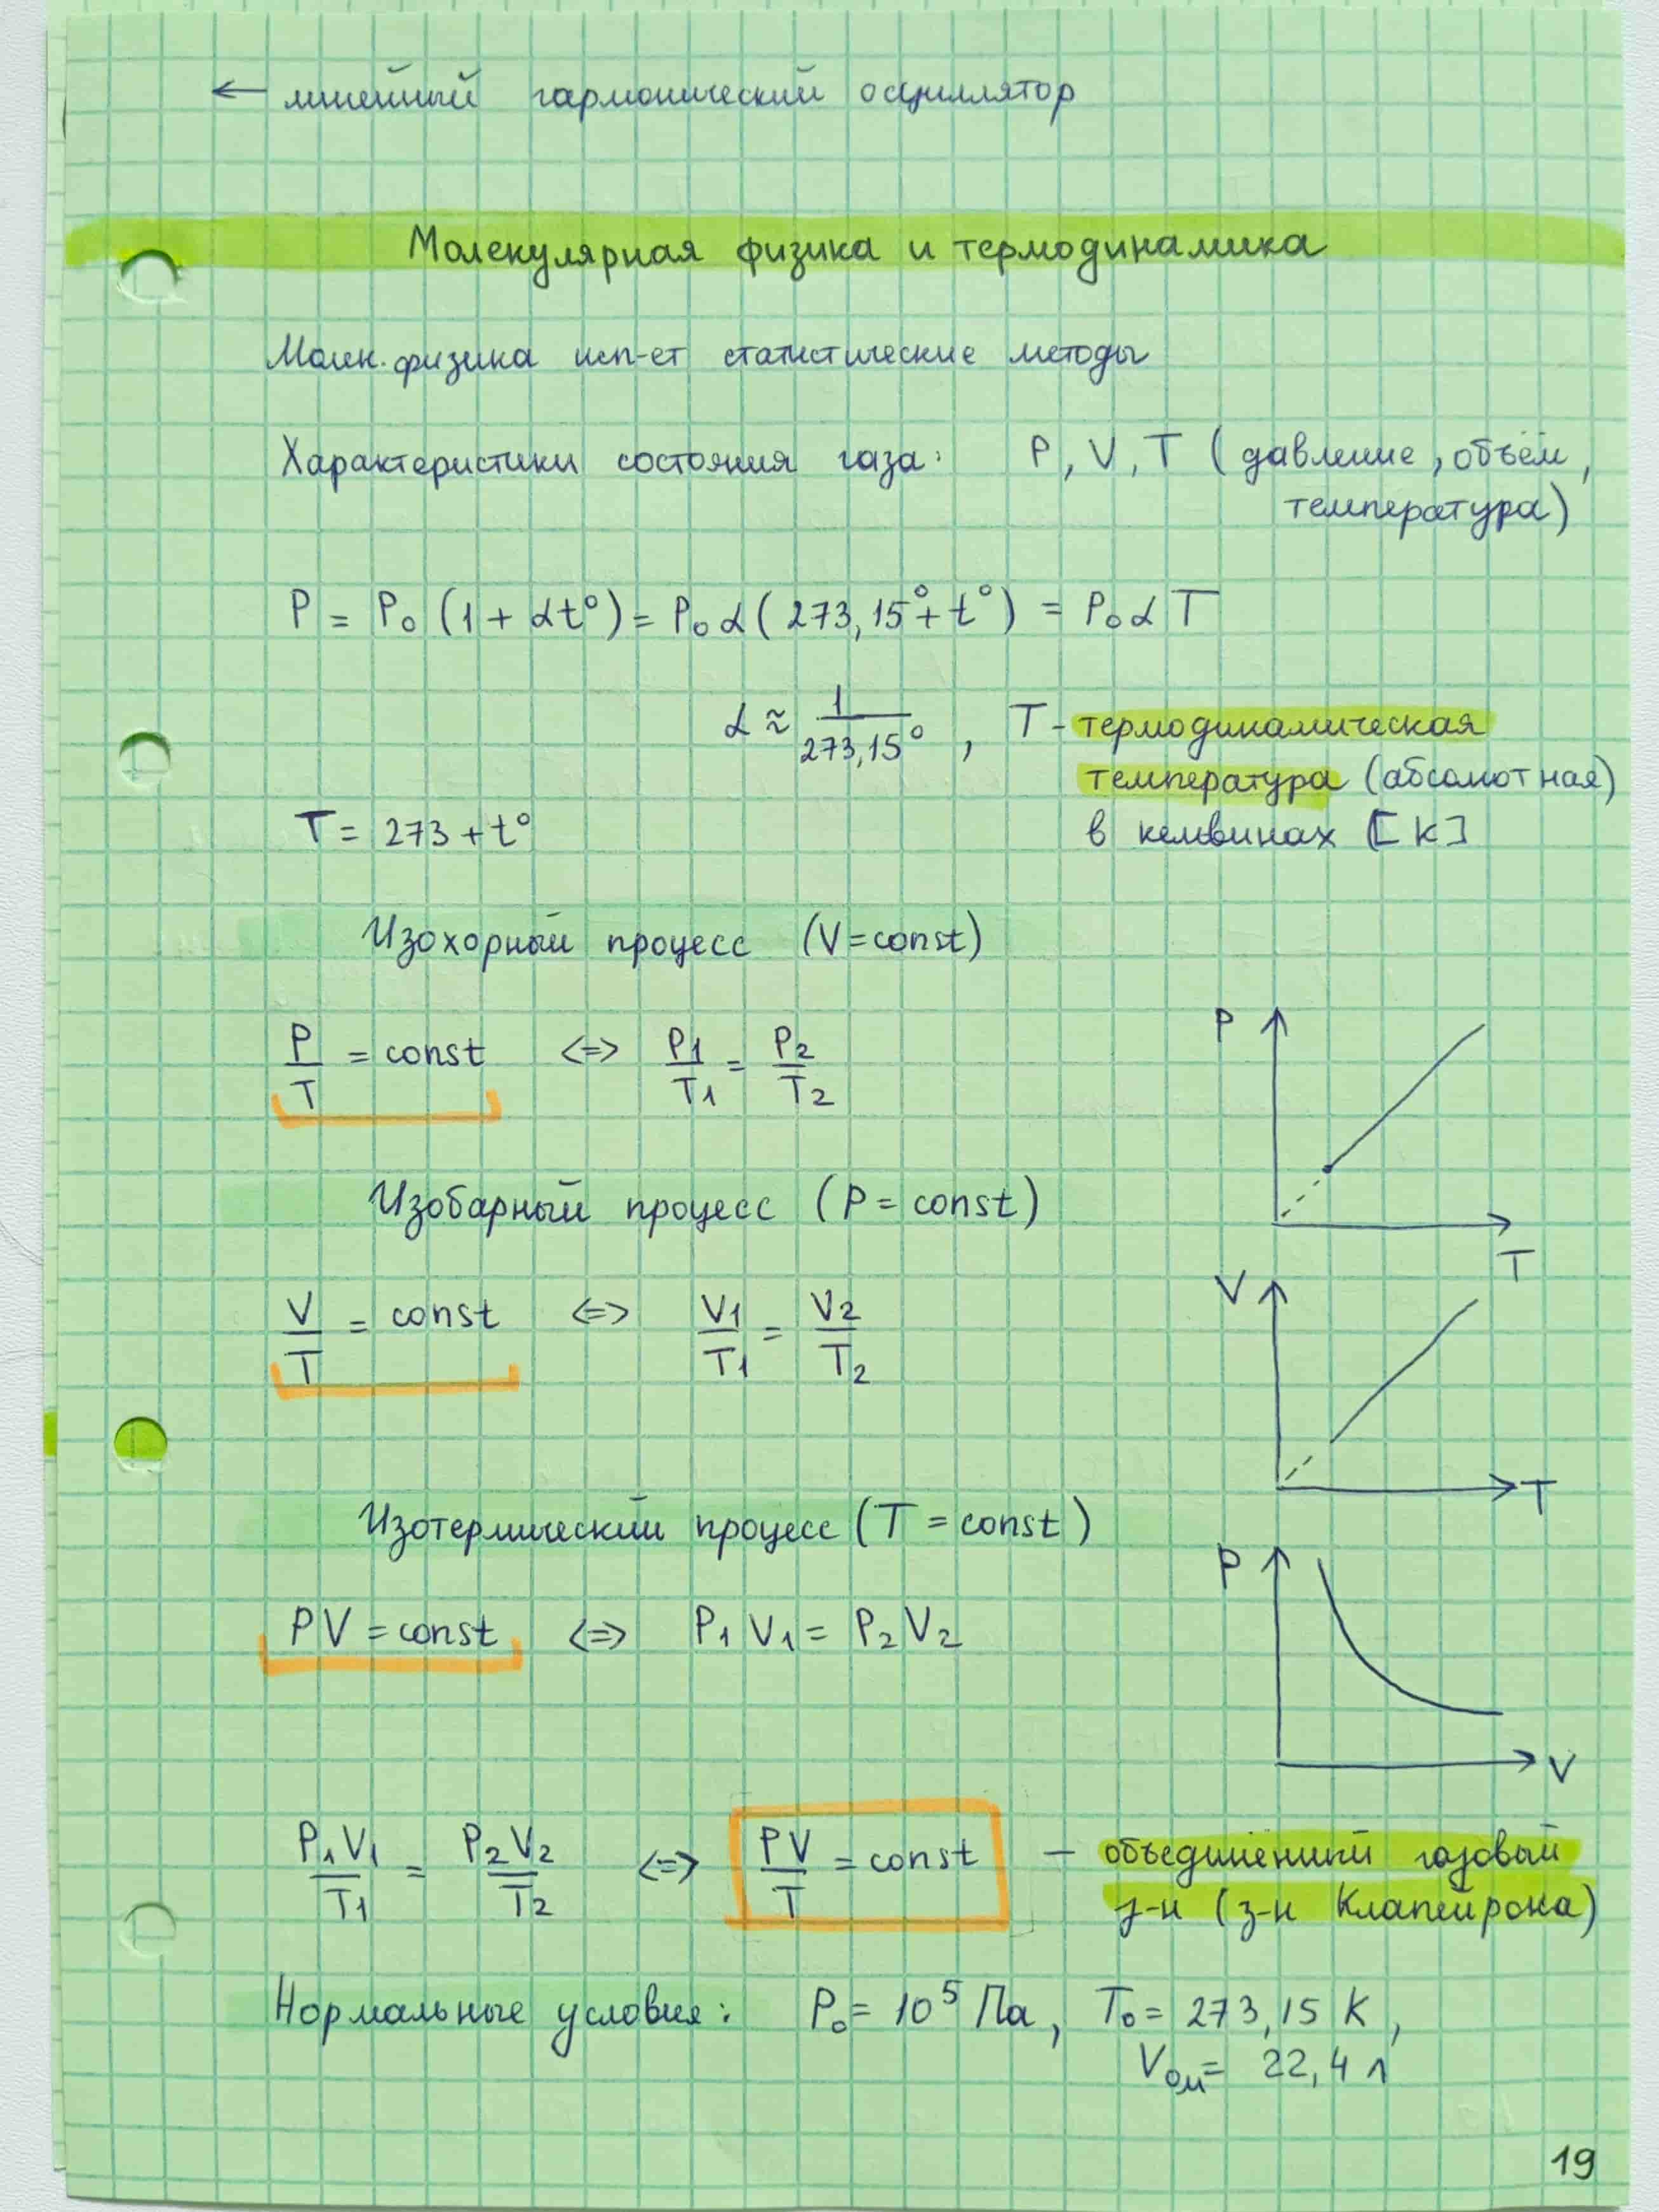 ← линейный гармонический осциллятор
Молекулярная физика и термодинамика
Молек. физика исп-ет статистические методы
Характеристики состояния газа: P, V, T (давление, объём,
температура)
P = P₀ (1 + αt°) = P₀ α (273,15° + t°) = P₀ α T
α ≈ 1/273,15° , T - термодинамическая
температура (абсолютная)
в кельвинах [K]
T = 273 + t°
Изохорный процесс (V = const)
P/T = const <=> P₁/T₁ = P₂/T₂
P
T
Изобарный процесс (P = const)
V/T = const <=> V₁/T₁ = V₂/T₂
V
T
Изотермический процесс (T = const)
PV = const <=> P₁V₁ = P₂V₂
P
V
P₁V₁/T₁ = P₂V₂/T₂ <=> PV/T = const — объединённый газовый
з-н (з-н Клапейрона)
Нормальные условия: P₀ = 10⁵ Па, T₀ = 273,15 K,
V₀м = 22,4 л
19